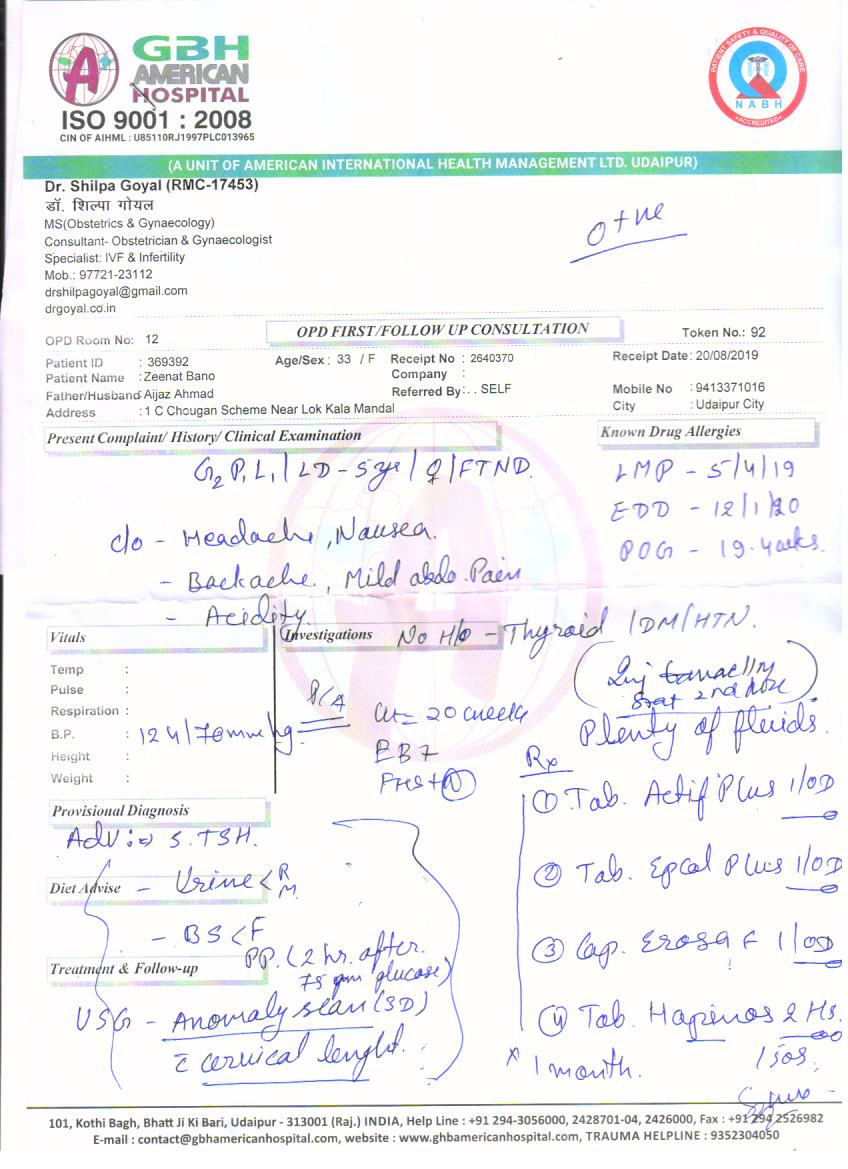 GBH
AMERICAN
HOSPITAL
ISO 9001 : 2008
CIN OF AIHML : U85110RJ1997PLC013965
PATIENT SAFETY & QUALITY OF CARE
NABH
ACCREDITED
(A UNIT OF AMERICAN INTERNATIONAL HEALTH MANAGEMENT LTD. UDAIPUR)
Dr. Shilpa Goyal (RMC-17453)
डॉ. शिल्पा गोयल
MS(Obstetrics & Gynaecology)
Consultant- Obstetrician & Gynaecologist
Specialist: IVF & Infertility
Mob.: 97721-23112
drshilpagoyal@gmail.com
drgoyal.co.in
O +ve
OPD Room No: 12 OPD FIRST/FOLLOW UP CONSULTATION Token No.: 92
Patient ID : 369392 Age/Sex : 33 / F Receipt No : 2640370 Receipt Date: 20/08/2019
Patient Name : Zeenat Bano Company :
Father/Husband: Aijaz Ahmad Referred By: . . SELF Mobile No : 9413371016
Address : 1 C Chougan Scheme Near Lok Kala Mandal City : Udaipur City
Present Complaint/ History/ Clinical Examination Known Drug Allergies
G2 P1 L1 / LD - 5 yr / ♀ / FTND.
LMP - 5/4/19
EDD - 12/1/20
POG - 19.4 wks.
c/o - Headache, Nausea.
- Backache, Mild abdo. Pain
- Acidity.
Vitals Investigations No H/o - Thyroid / DM / HTN.
Temp :
Pulse :
Respiration :
B.P. : 124/70 mm/hg
Height :
Weight :
P/A Ut = 20 weeks
EB7
FHS + N
(Inj
stat 2nd dose)
Plenty of fluids.
Rx
① Tab. Actif Plus 1/OD
② Tab. Epcal Plus 1/OD
③ Cap. Erosa F 1/OD
④ Tab. Hapinos 2 Hs.
1 sos,
x 1 month.
Provisional Diagnosis
Adv :=> S. TSH.
Diet Advise - Urine < R
M.
- BS < F
PP. (2 hr. after
75 gm glucose)
Treatment & Follow-up
USG - Anomaly scan (3D)
c̄ cervical lenght.
101, Kothi Bagh, Bhatt Ji Ki Bari, Udaipur - 313001 (Raj.) INDIA, Help Line : +91 294-3056000, 2428701-04, 2426000, Fax : +91 294 2526982
E-mail : contact@gbhamericanhospital.com, website : www.ghbamericanhospital.com, TRAUMA HELPLINE : 9352304050